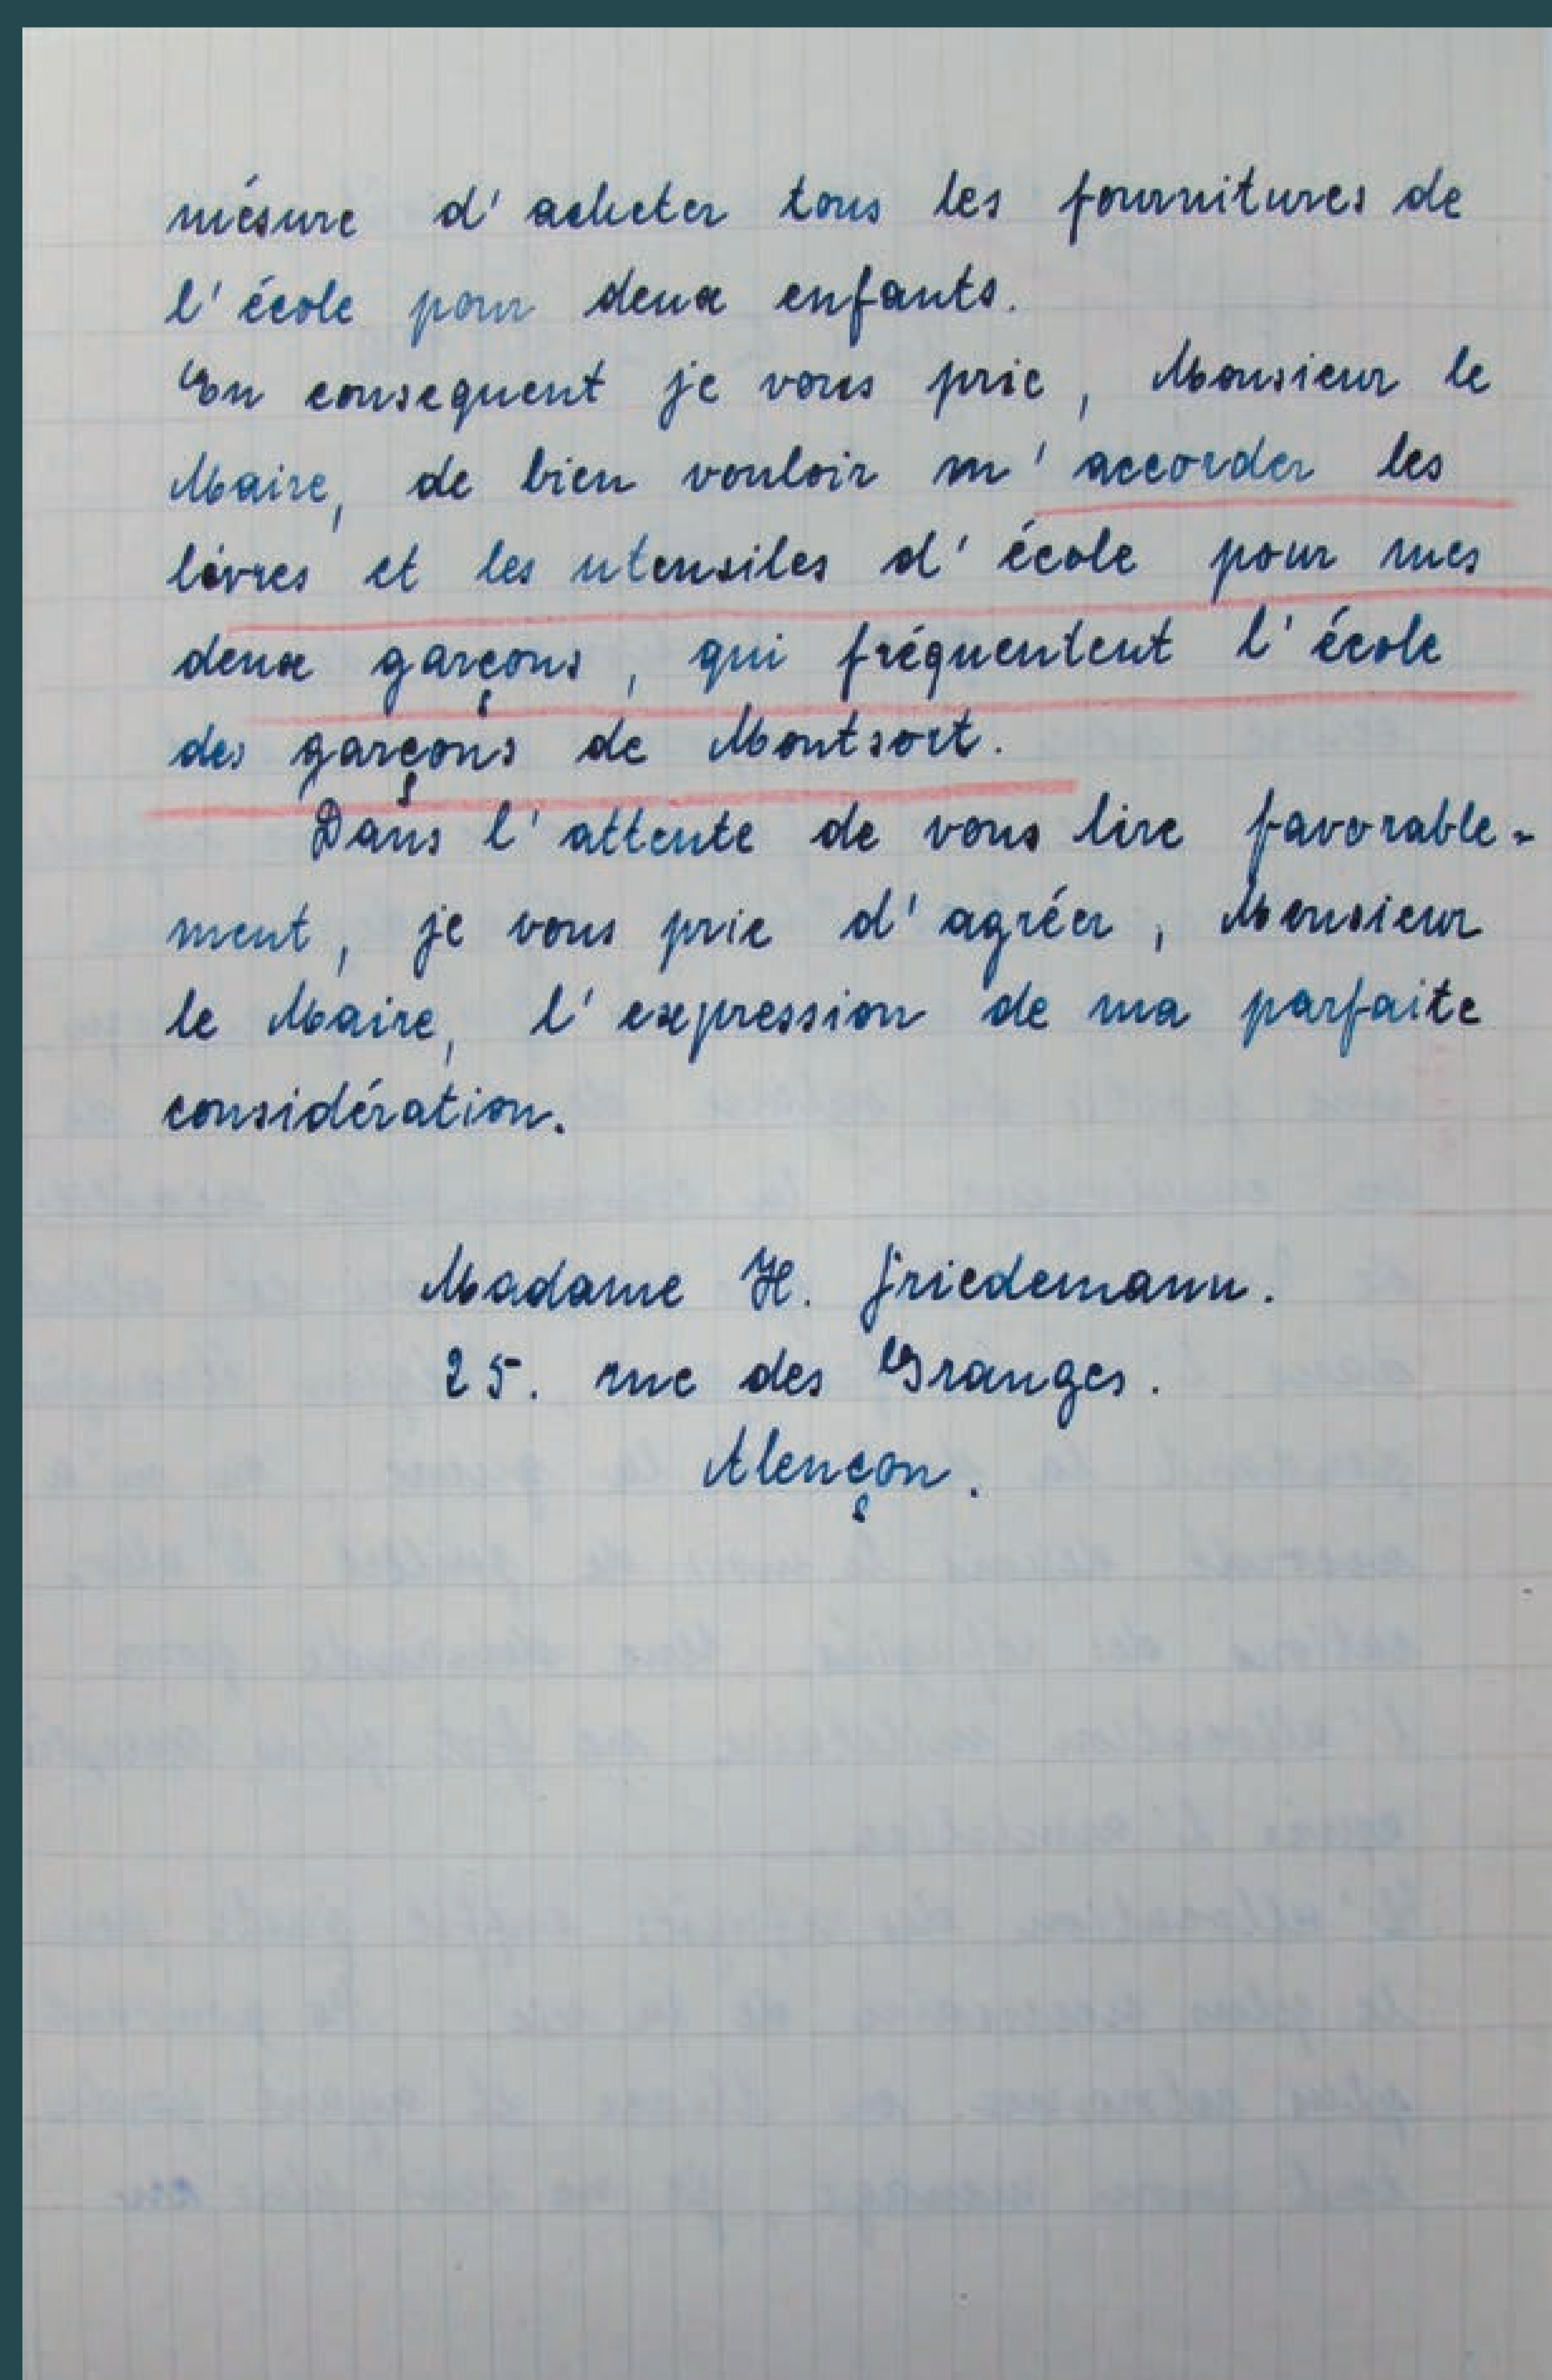 mésure d'acheter tous les fournitures de
l'école pour deux enfants.
En consequent je vous prie, Monsieur le
Maire, de bien vouloir m'accorder les
livres et les utensiles d'école pour mes
deux garçons, qui fréquentent l'école
des garçons de Montsort.
Dans l'attente de vous lire favorable-
ment, je vous prie d'agréer, Monsieur
le Maire, l'expression de ma parfaite
considération.
Madame H. Friedemann.
25. rue des Granges.
Alençon.